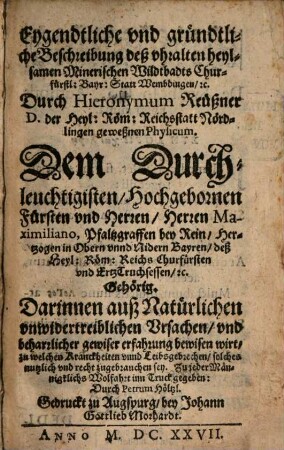 Eygendtliche vnd gründtli-
che Beschreibung deß vhralten heyl-
samen Minerischen Wildtbadts Chur-
fürstl: Bayr: Statt Wembdingen/ ꝛc.
Durch Hieronymum Reüßner
D. der Heyl: Röm: Reichsstatt Nörd-
lingen geweßnen Physicum.
Dem Durch-
leuchtigisten/ Hochgebornen
Fürsten vnd Herren/ Herren Ma-
ximiliano, Pfaltzgraffen bey Rein/ Her-
tzogen in Obern vnnd Nidern Bayren/ deß
Heyl: Röm: Reichs Churfürsten
vnd ErtzTruchsessen/ ꝛc.
Gehörig.
Darinnen auß Natürlichen
vnwidertreiblichen Vrsachen/ vnd
beharrlicher gewiser erfahrung bewisen wirt/
zu welchen Kranckheiten vnnd Leibsgebrechen/ solches
nutzlich vnd recht zugebrauchen sey. Zu jeder Män-
nigklichs Wolfahrt inn Truck gegeben:
Durch Petrum Höltzl.
Gedruckt zu Augspurg/ bey Johann
Gottlieb Morhardt.
ANNO M. DC. XXVII.